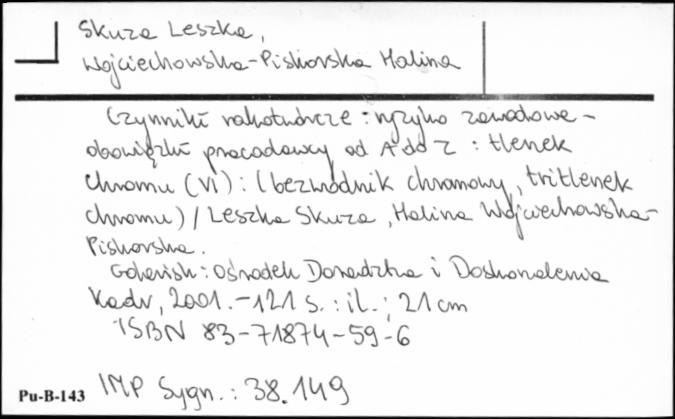 Skuza Leszka,
Wojciechowska-Piskorska Halina
Czynniki rakotwórcze : ryzyko zawodowe -
obowiązki pracodawcy od A do Z : tlenek
chromu (VI) : (bezwodnik chromowy, tritlenek
chromu) / Leszka Skuza, Halina Wojciechowska-
Piskorska.
Gdańsk : Ośrodek Doradztwa i Doskonalenia
Kadr, 2001. - 121 s. : il. ; 21 cm
ISBN 83-71874-59-6
IMP Sygn. : 38.149
Pu-B-143